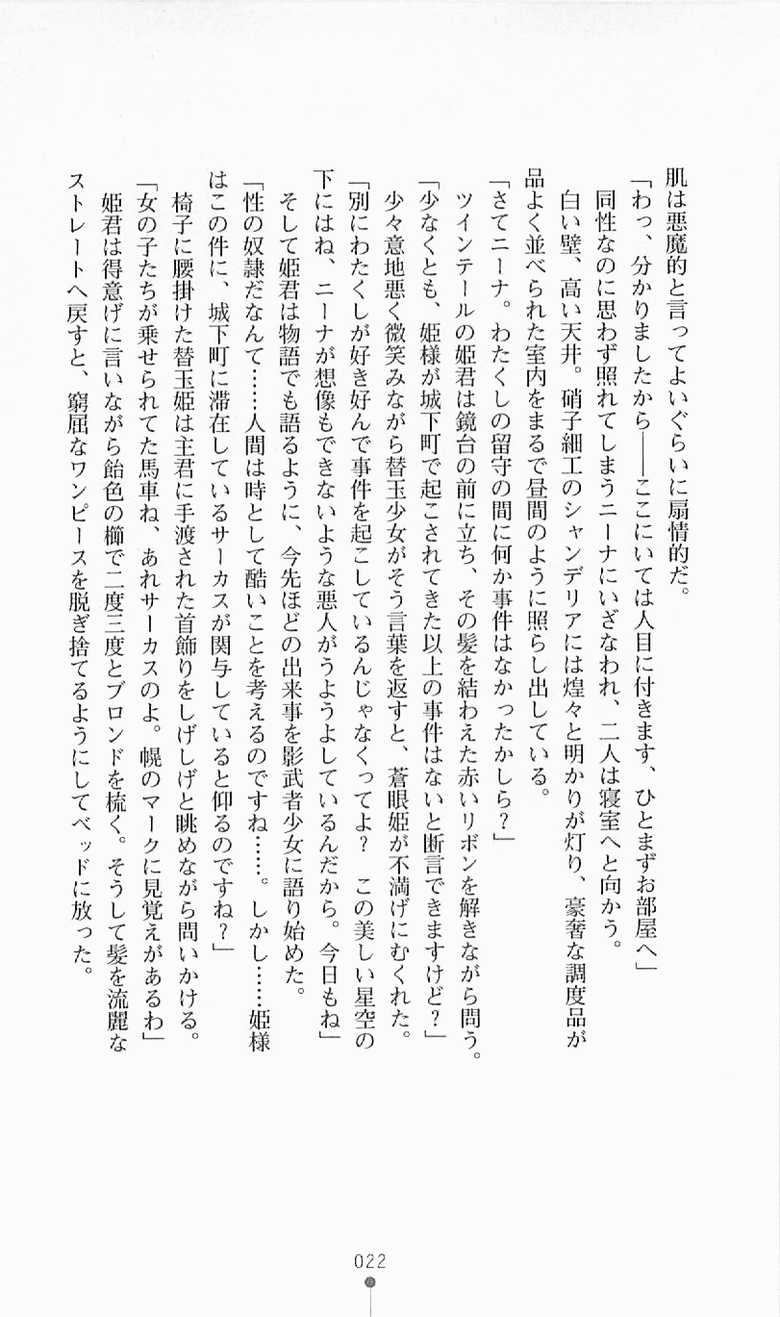 肌は悪魔的と言ってよいぐらいに扇情的だ。
「わっ、分かりましたから――ここにいては人目に付きます、ひとまずお部屋へ」
同性なのに思わず照れてしまうニーナにいざなわれ、二人は寝室へと向かう。
白い壁、高い天井。硝子細工のシャンデリアには煌々と明かりが灯り、豪奢な調度品が
品よく並べられた室内をまるで昼間のように照らし出している。
「さてニーナ。わたくしの留守の間に何か事件はなかったかしら？」
ツインテールの姫君は鏡台の前に立ち、その髪を結わえた赤いリボンを解きながら問う。
「少なくとも、姫様が城下町で起こされてきた以上の事件はないと断言できますけど？」
少々意地悪く微笑みながら替玉少女がそう言葉を返すと、蒼眼姫が不満げにむくれた。
「別にわたくしが好き好んで事件を起こしているんじゃなくってよ？　この美しい星空の
下にはね、ニーナが想像もできないような悪人がうようよしているんだから。今日もね」
そして姫君は物語でも語るように、今先ほどの出来事を影武者少女に語り始めた。
「性の奴隷だなんて……人間は時として酷いことを考えるのですね……。しかし……姫様
はこの件に、城下町に滞在しているサーカスが関与していると仰るのですね？」
椅子に腰掛けた替玉姫は主君に手渡された首飾りをしげしげと眺めながら問いかける。
「女の子たちが乗せられてた馬車ね、あれサーカスのよ。幌のマークに見覚えがあるわ」
姫君は得意げに言いながら飴色の櫛で二度三度とブロンドを梳く。そうして髪を流麗な
ストレートへ戻すと、窮屈なワンピースを脱ぎ捨てるようにしてベッドに放った。
022